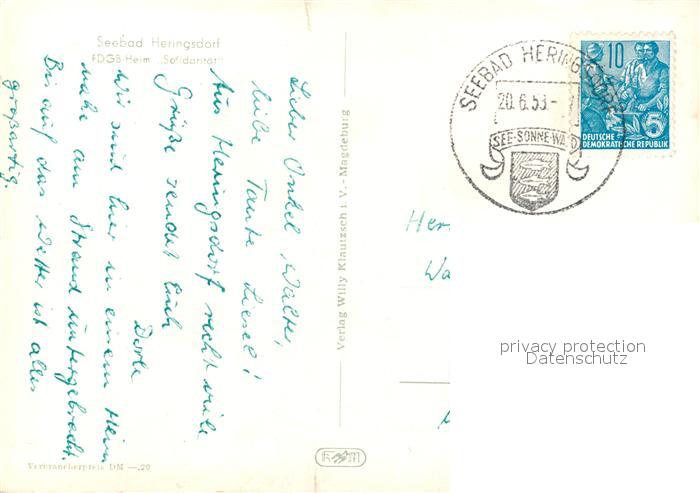 Seebad Heringsdorf
FDGB-Heim „Solidarität"
Lieber Onkel Walter,
liebe Tante Liesel!
Aus Heringsdorf recht viele
Grüße sendet Euch
Dorle
Wir sind hier in einem Heim
nahe am Strand untergebracht.
Bis auf das Wetter ist alles
großartig.
Verbraucherpreis DM —,20
Verlag Willy Klautzsch i. V. - Magdeburg
SEEBAD HERINGSDORF
20.6.53.-
SEE-SONNE-WALD
10
5
DEUTSCHE
DEMOKRATISCHE REPUBLIK
Her
Wa
privacy protection
Datenschutz